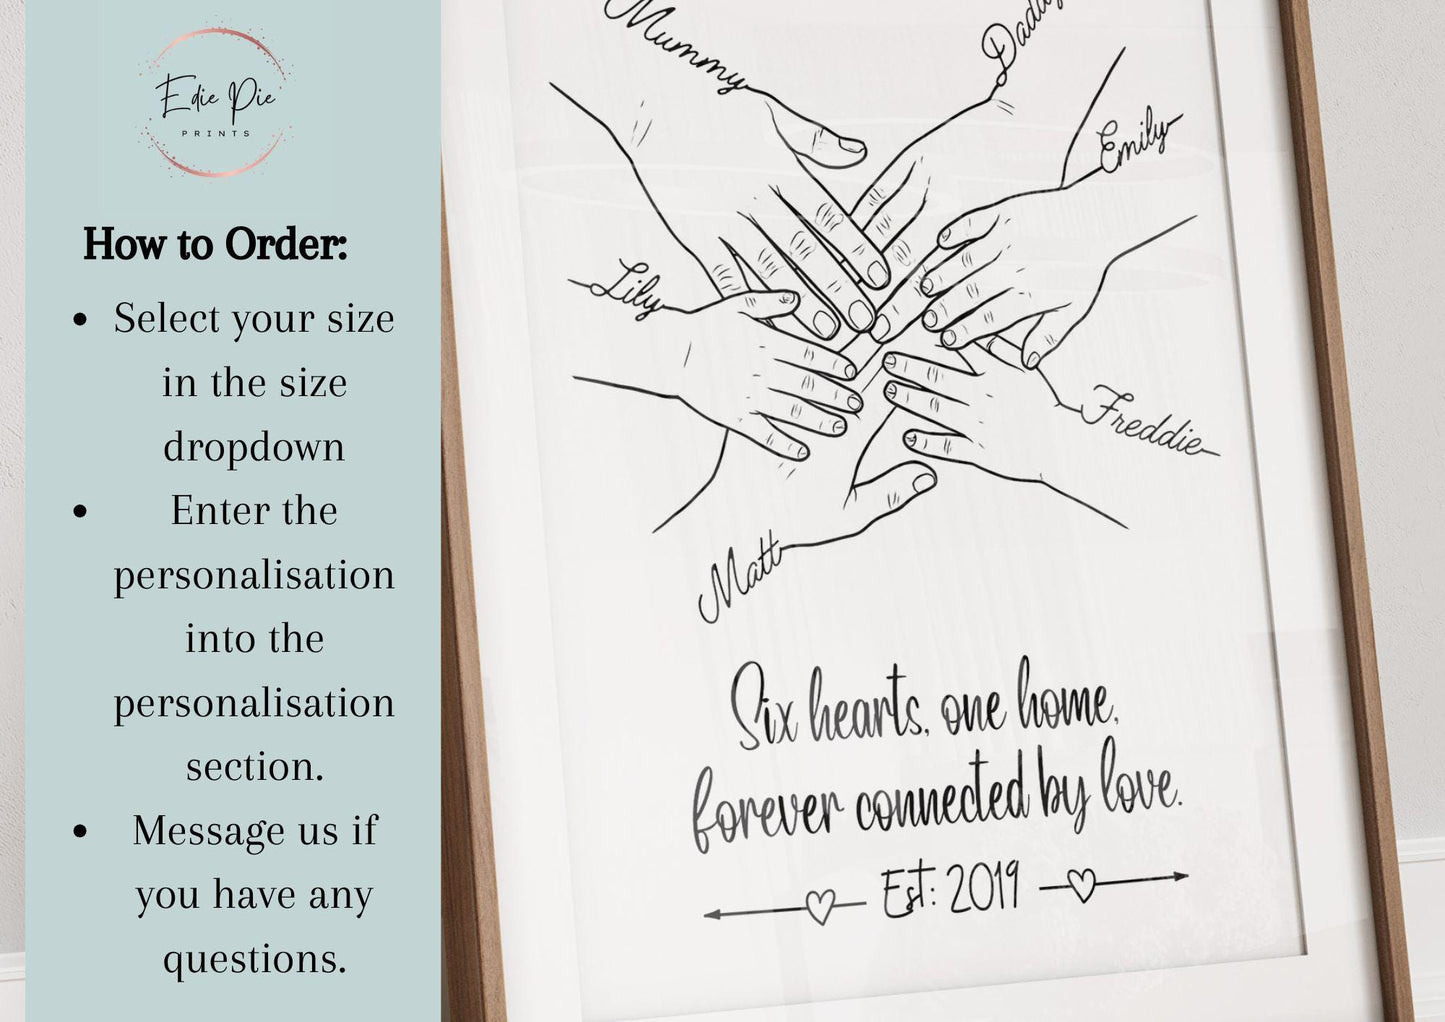 Edie Pie
PRINTS
How to Order:
• Select your size
in the size
dropdown
• Enter the
personalisation
into the
personalisation
section.
• Message us if
you have any
questions.
Mummy
Daddy
Emily
Lily
Freddie
Matt
Six hearts, one home,
forever connected by love.
Est: 2019